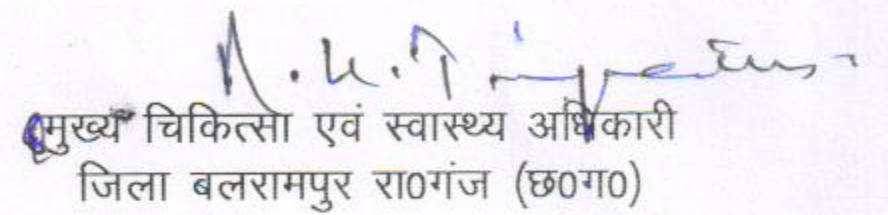 मुख्य चिकित्सा एवं स्वास्थ्य अधिकारी
जिला बलरामपुर रा0गंज (छ0ग0)